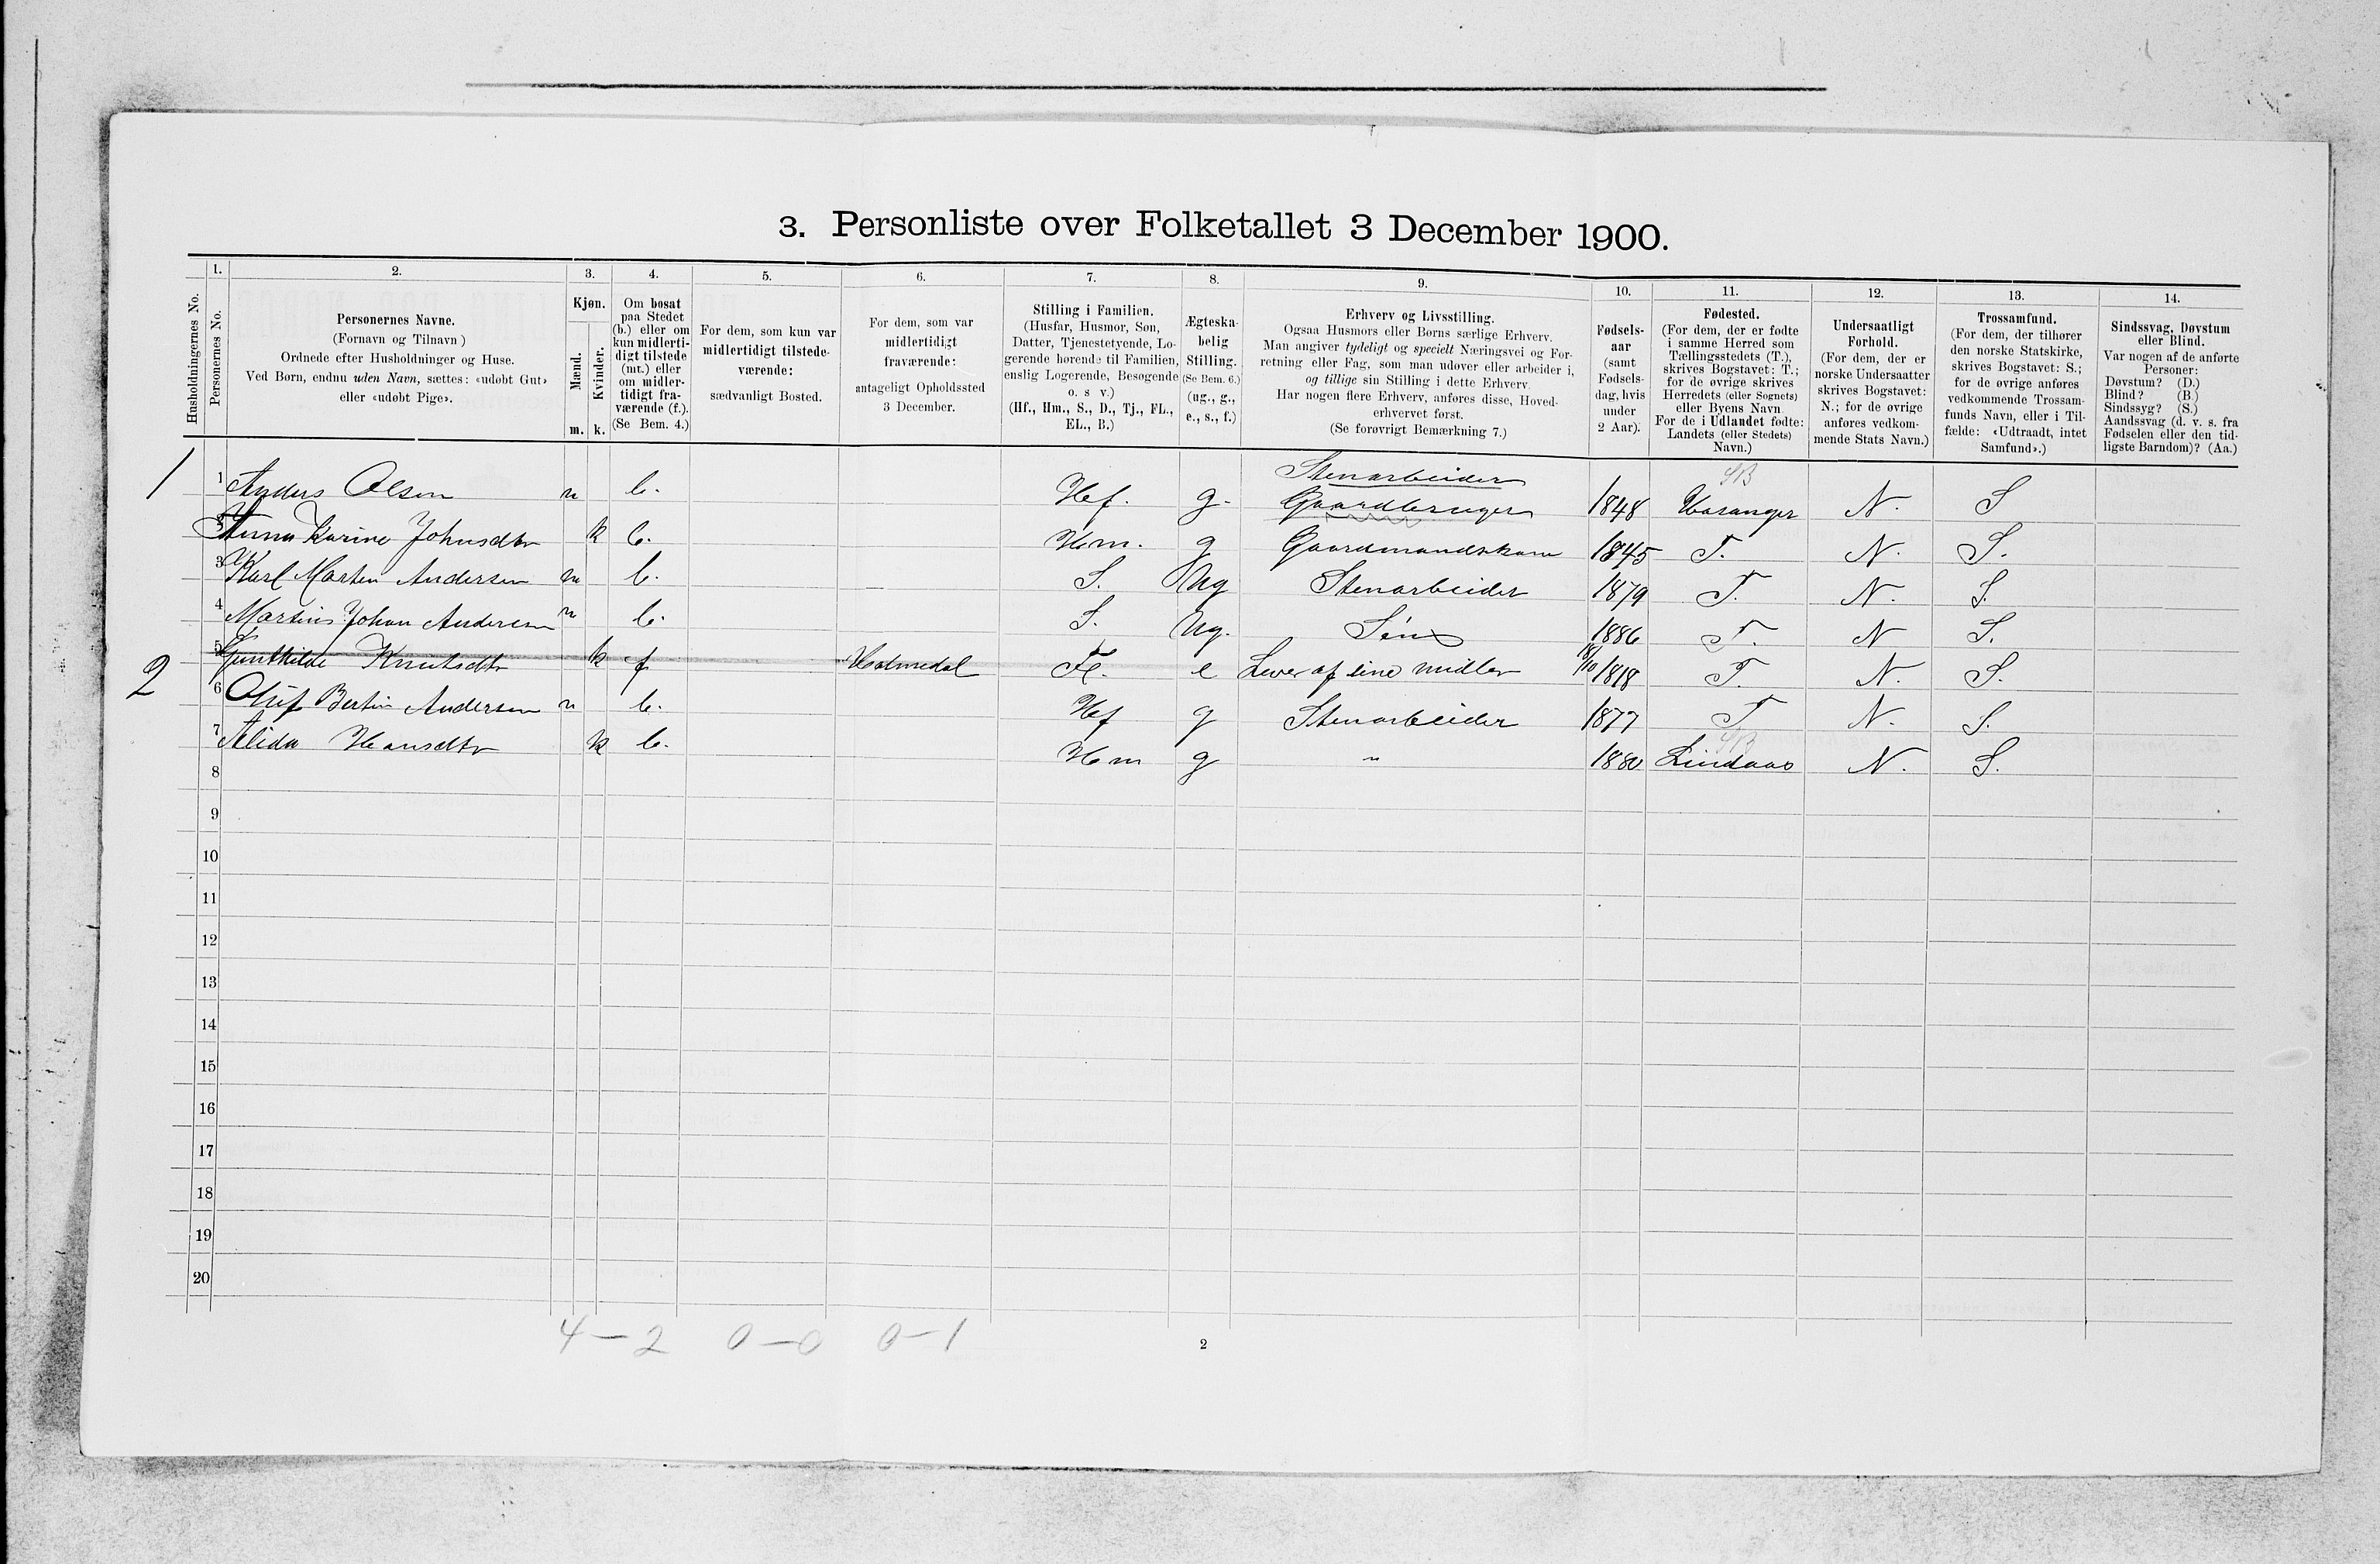 3. Personliste over Folketallet 3 December 1900.
1. 2. 3. 4. 5. 6. 7. 8. 9. 10. 11. 12. 13. 14.
Husholdningernes No.
Personernes No.
Personernes Navne.
(Fornavn og Tilnavn)
Ordnede efter Husholdninger og Huse.
Ved Børn, endnu uden Navn, sættes: «udøbt Gut»
eller «udøbt Pige».
Kjøn.
Mænd.
Kvinder.
m. k.
Om bosat
paa Stedet
(b.) eller om
kun midlerti-
digt tilstede
(mt.) eller
om midler-
tidigt fra-
værende (f.).
(Se Bem. 4.)
For dem, som kun var
midlertidigt tilstede-
værende:
sædvanligt Bosted.
For dem, som var
midlertidigt
fraværende:
antageligt Opholdssted
3 December.
Stilling i Familien.
(Husfar, Husmor, Søn,
Datter, Tjenestetyende, Lo-
gerende hørende til Familien,
enslig Logerende, Besøgende
o. s v.)
(Hf., Hm., S., D., Tj., FL.,
EL., B.)
Ægteska-
belig
Stilling.
(Se Bem. 6.)
(ug., g.,
e., s., f.)
Erhverv og Livsstilling.
Ogsaa Husmors eller Børns særlige Erhverv.
Man angiver tydeligt og specielt Næringsvei og For-
retning eller Fag, som man udøver eller arbeider i,
og tillige sin Stilling i dette Erhverv.
Har nogen flere Erhverv, anføres disse, Hoved-
erhvervet først.
(Se forøvrigt Bemærkning 7.)
Fødsels-
aar
(samt
Fødsels-
dag, hvis
under
2 Aar).
Fødested.
(For dem, der er fødte
i samme Herred som
Tællingsstedets (T.),
skrives Bogstavet: T.;
for de øvrige skrives
Herredets (eller Sognets)
eller Byens Navn.
For de i Udlandet fødte:
Landets (eller Stedets)
Navn.)
Undersaatligt
Forhold.
(For dem, der er
norske Undersaatter
skrives Bogstavet:
N.; for de øvrige
anføres vedkom-
mende Stats Navn.)
Trossamfund.
(For dem, der tilhører
den norske Statskirke,
skrives Bogstavet: S.;
for de øvrige anføres
vedkommende Trossam-
funds Navn, eller i Til-
fælde: «Udtraadt, intet
Samfund».)
Sindssvag, Døvstum
eller Blind.
Var nogen af de anførte
Personer:
Døvstum? (D.)
Blind? (B.)
Sindssyg? (S.)
Aandssvag (d. v. s. fra
Fødselen eller den tid-
ligste Barndom)? (Aa.)
Stenarbeider SB
1 1 Anders Olsen m b. Hf. g. Gaardbruger 1848 Hosanger N. S
2 Anna Karine Johnsdtr k b. Hm. g Gaardmandskone 1845 T. N. S.
3 Karl Martin Andersen m b. S. Ug Stenarbeider 1879 T. N. S.
4 Martinis Johan Andersen m b. S. Ug. Søn 1886 T. N S.
5 Gunthilde Knutsdtr k f Holmedal FL. e Lever af sine midler 1818 T. N. S.
2 6 Oluf Bertin Andersen m b. Hf g Stenarbeider 1877 T N. S.
SB
7 Alida Hansdtr k b. Hm g " 1880 Lindaas N. S.
8
9
10
11
12
13
14
15
16
17
18
19
20
4-2 0-0 0-1
2